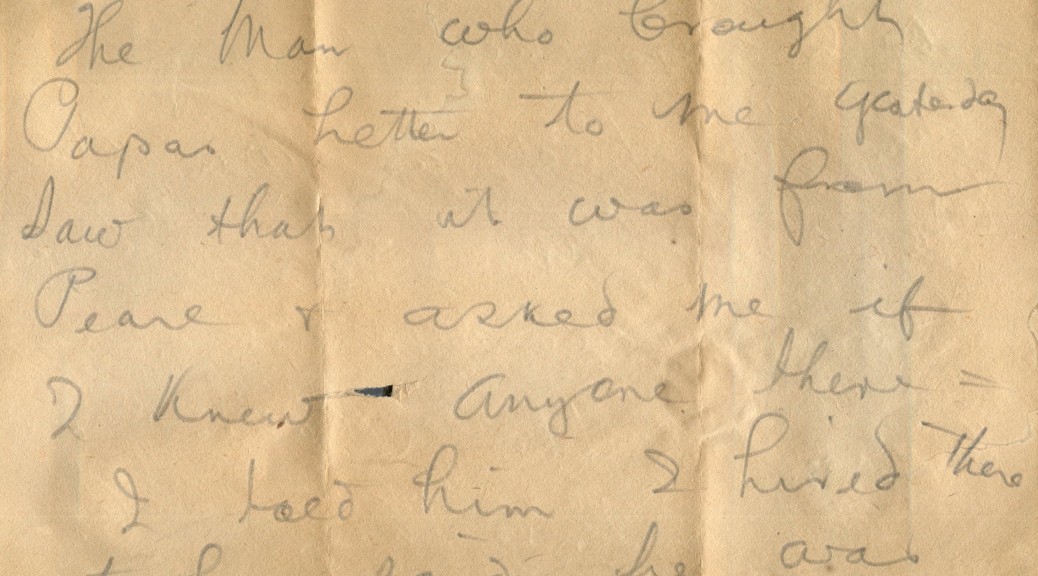 The Man who brought
Papas Letter to me yesterday
Saw that it was from
Pearl & asked me if
I Knew anyone there =
I told him I lived there
he was